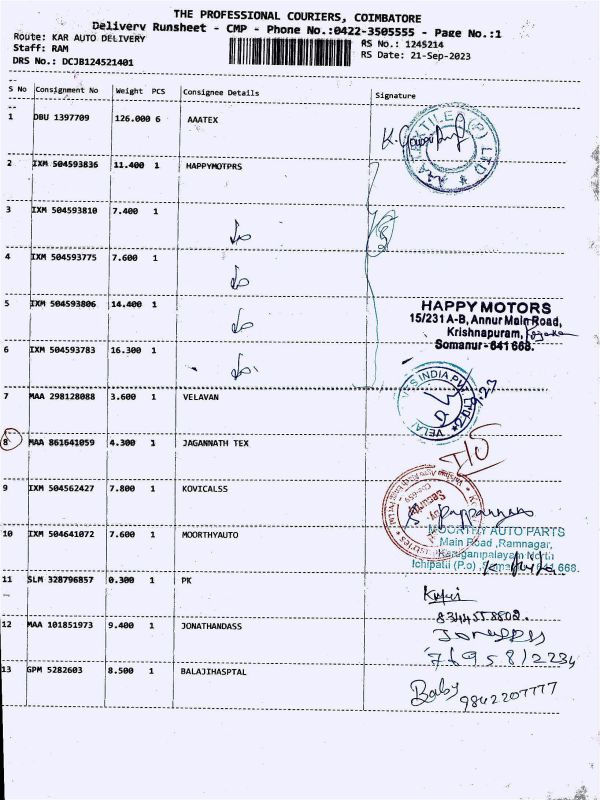 THE PROFESSIONAL COURIERS, COIMBATORE
Delivery Runsheet - CMP - Phone No.:0422-3505555 - Page No.:1
Route: KAR AUTO DELIVERY
Staff: RAM
DRS No.: DCJB124521401
RS No.: 1245214
RS Date: 21-Sep-2023
S No Consignment No Weight PCS Consignee Details Signature
1 DBU 1397709 126.000 6 AAATEX
2 IXM 504593836 11.400 1 HAPPYMOTPRS
3 IXM 504593810 7.400 1
4 IXM 504593775 7.600 1
5 IXM 504593806 14.400 1
HAPPY MOTORS
15/231 A-B, Annur Main Road,
Krishnapuram,
Somanur - 641 668.
6 IXM 504593783 16.300 1
7 MAA 298128088 3.600 1 VELAVAN
8 MAA 861641059 4.300 1 JAGANNATH TEX
9 IXM 504562427 7.800 1 KOVICALSS
10 IXM 504641072 7.600 1 MOORTHYAUTO
MOORTHY AUTO PARTS
Main Road, Ramnagar,
Karugampalayam North
Ichipatti (P.o) 641 668.
11 SLM 328796857 0.300 1 PK
8344558802.
12 MAA 101851973 9.400 1 JONATHANDASS
7695812234
13 GPM 5282603 8.500 1 BALAJIHASPTAL
Baby 9842207777